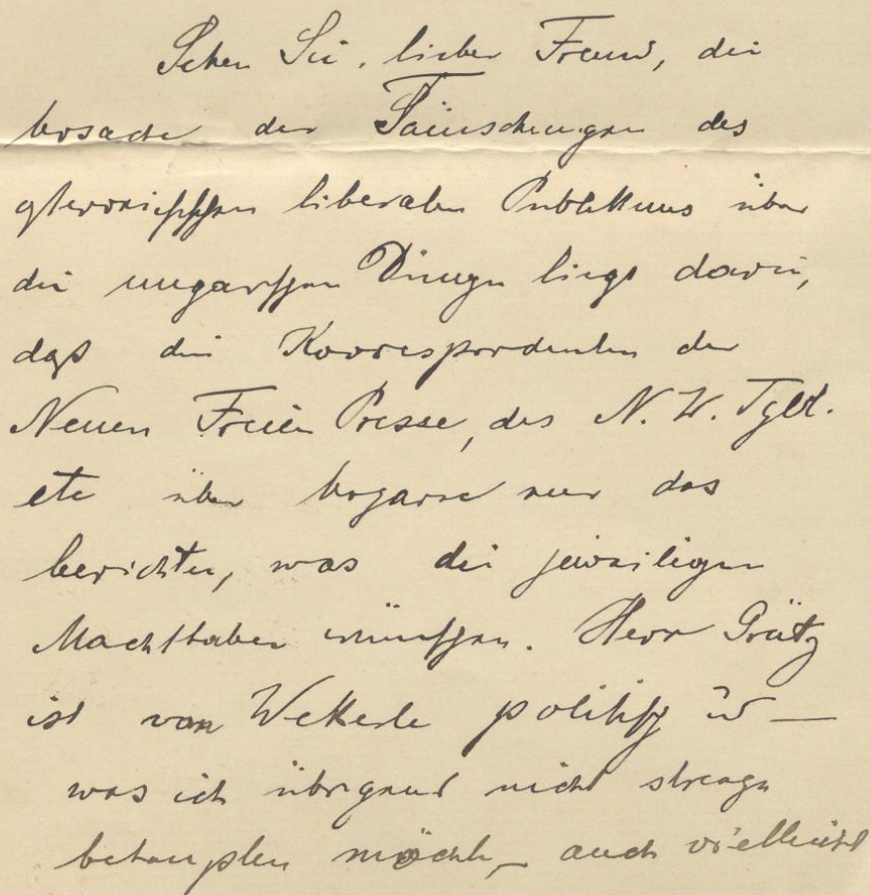 Sehen Sie, lieber Freund, die
Ursache der Täuschungen des
österreichischen liberalen Publikums über
die ungarischen Dinge liegt darin,
daß die Korrespondenten der
Neuen Freien Presse, des N. W. Tgbl.
etc über Ungarn nur das
berichten, was die jeweiligen
Machthaber wünschen. Herr Grätz
ist von Wekerle politisch u –
was ich übrigens nicht strenge
behaupten möchte, – auch vielleicht